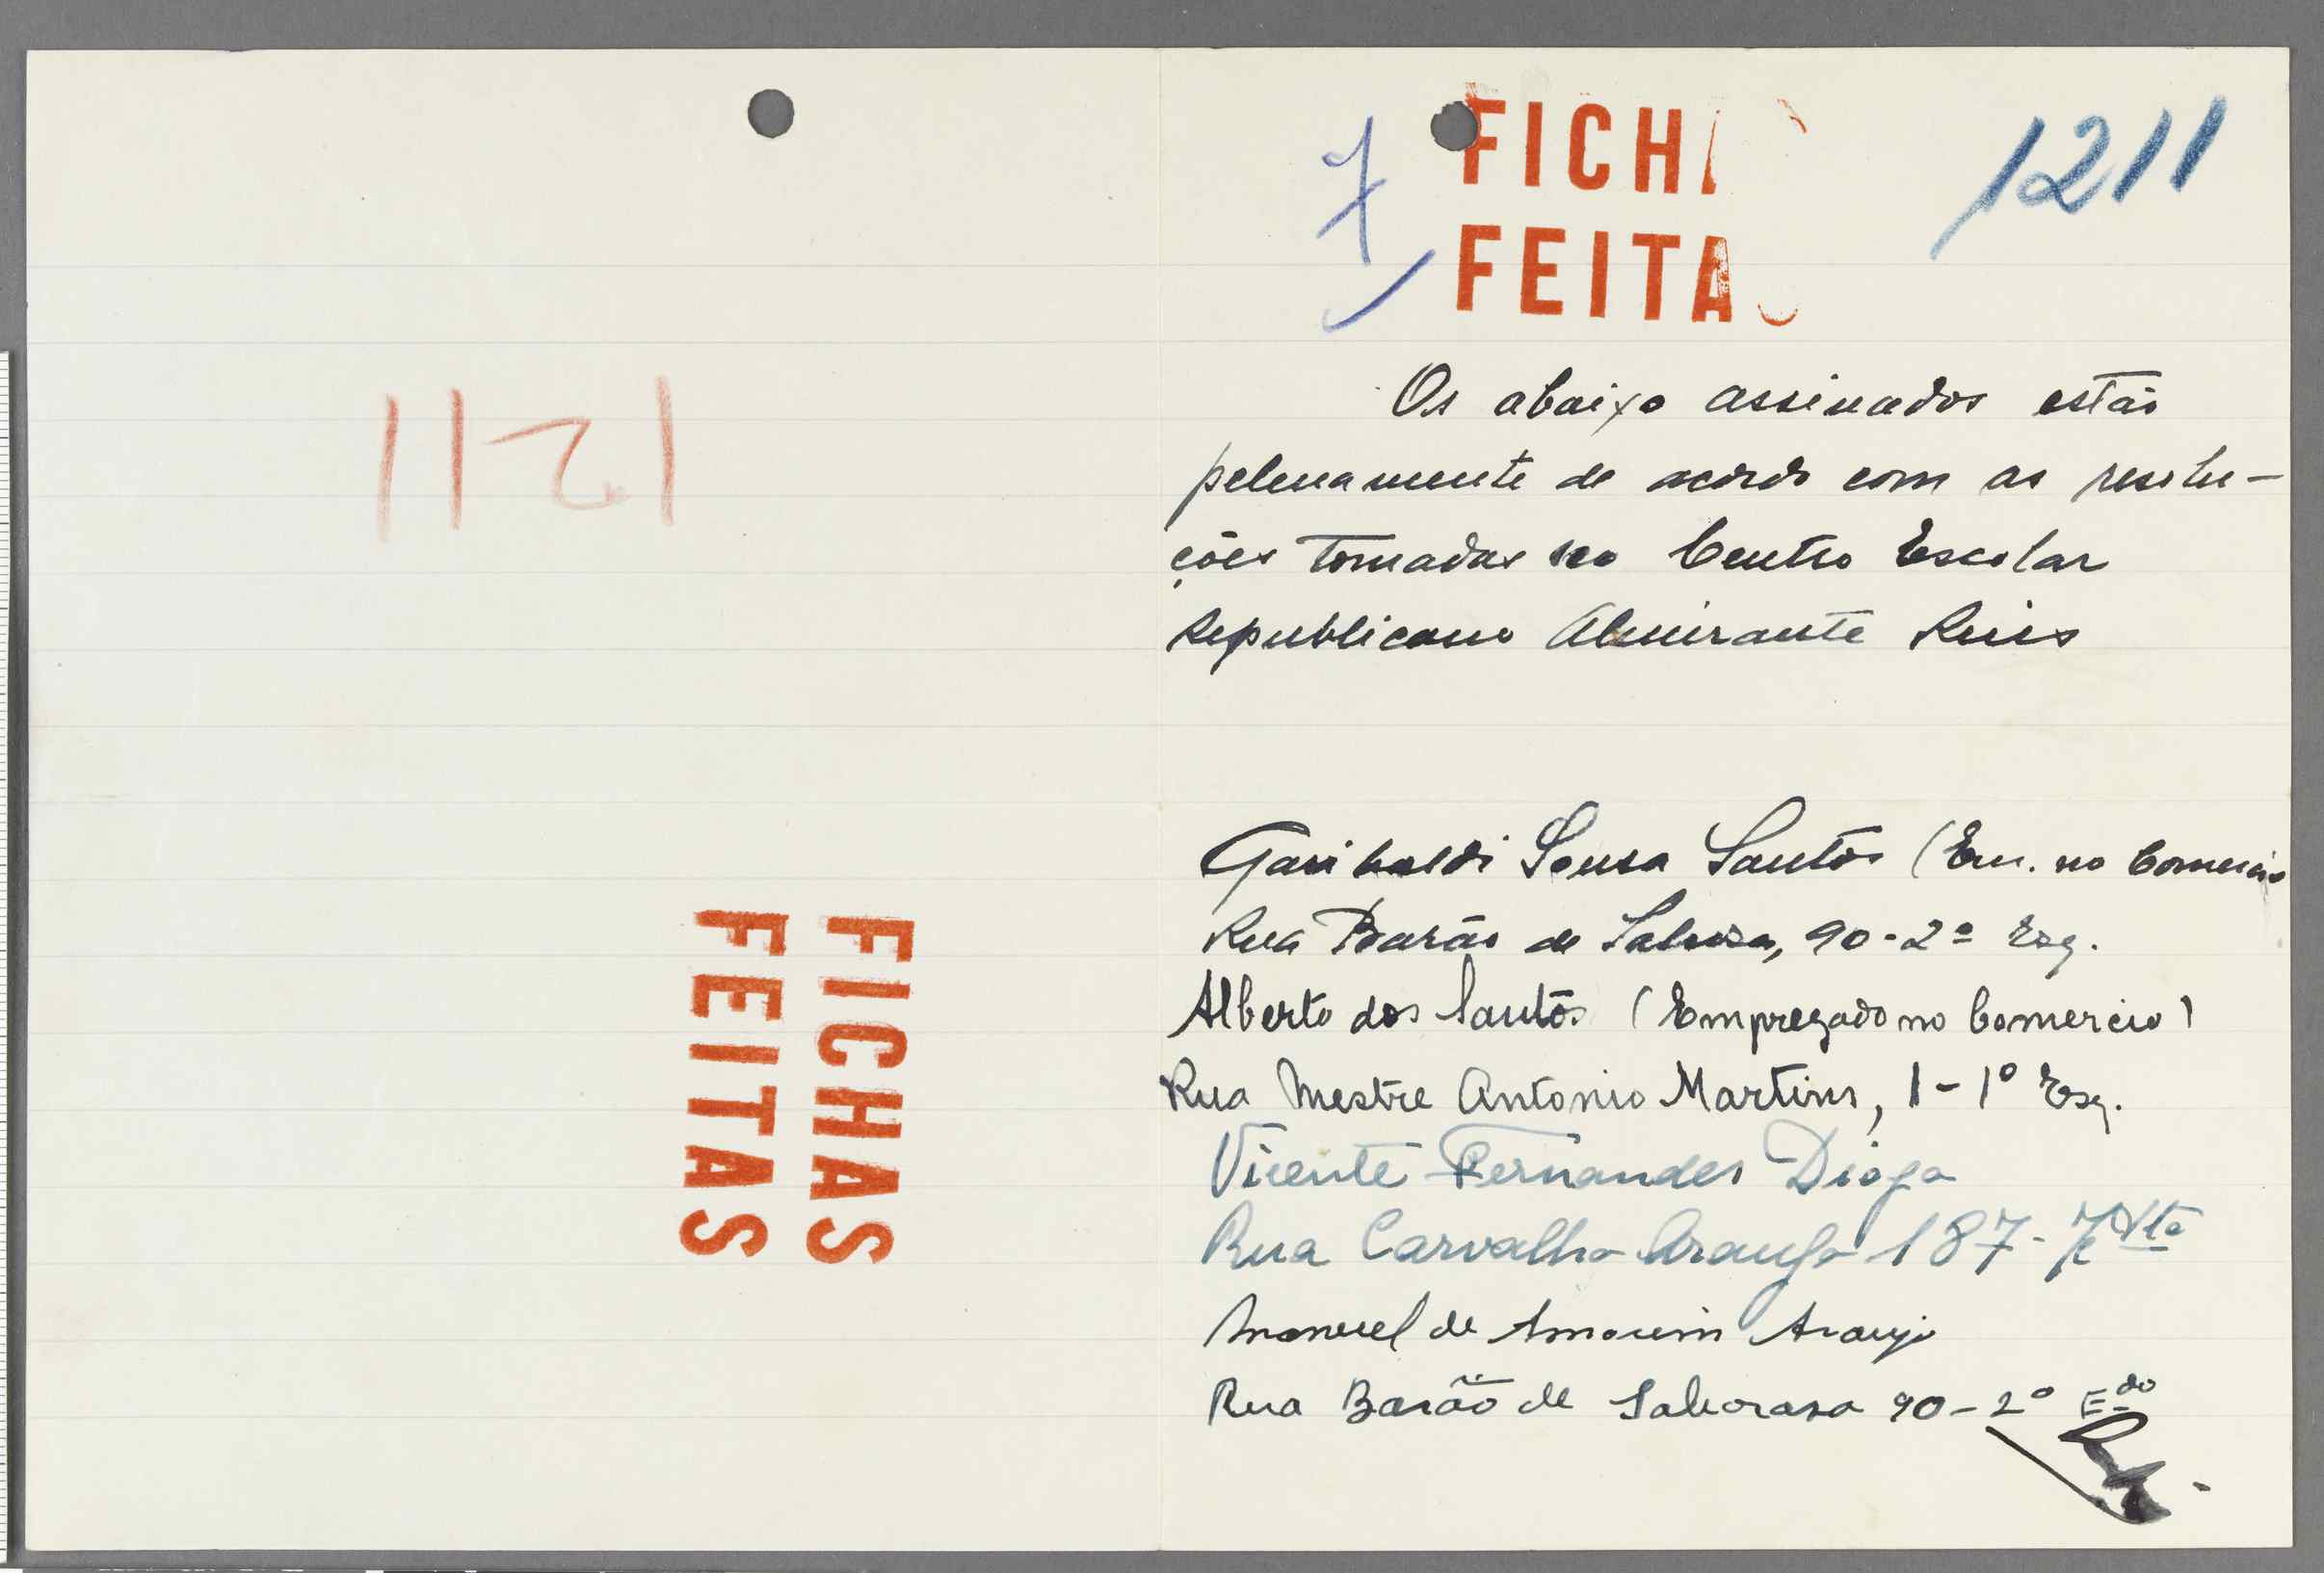 1211
FICHAS
FEITAS
7
FICH
FEITA
1211
Os abaixo assinados estão
pelenamente de acordo com as resolu-
ções tomadas no Centro Escolar
Republicano Almirante Reis
Garibaldi Sousa Santos (Em. no Comercio
Rua Barão de Sabrosa, 90-2º Esq.
Alberto dos Santos (Empregado no Comercio)
Rua Mestre Antonio Martins, 1-1º Esq.
Vicente Fernandes Diogo
Rua Carvalho Araujo 187-
Manuel de Amorim Araujo
Rua Barão de Saborosa 90-2º E-do